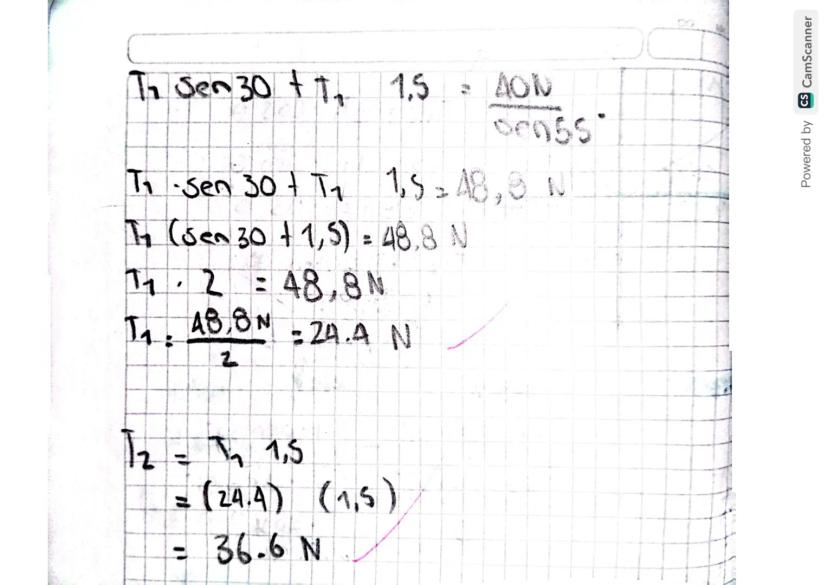 T1 Sen 30 + T1 1,5 = 40N / sen55°
T1 . sen 30 + T1 1,5 = 48,8 N
T1 (sen 30 + 1,5) = 48.8 N
T1 . 2 = 48,8 N
T1 = 48,8 N / 2 = 24.4 N
T2 = T1 1,5
= (24.4) (1,5)
= 36.6 N
Powered by CS CamScanner